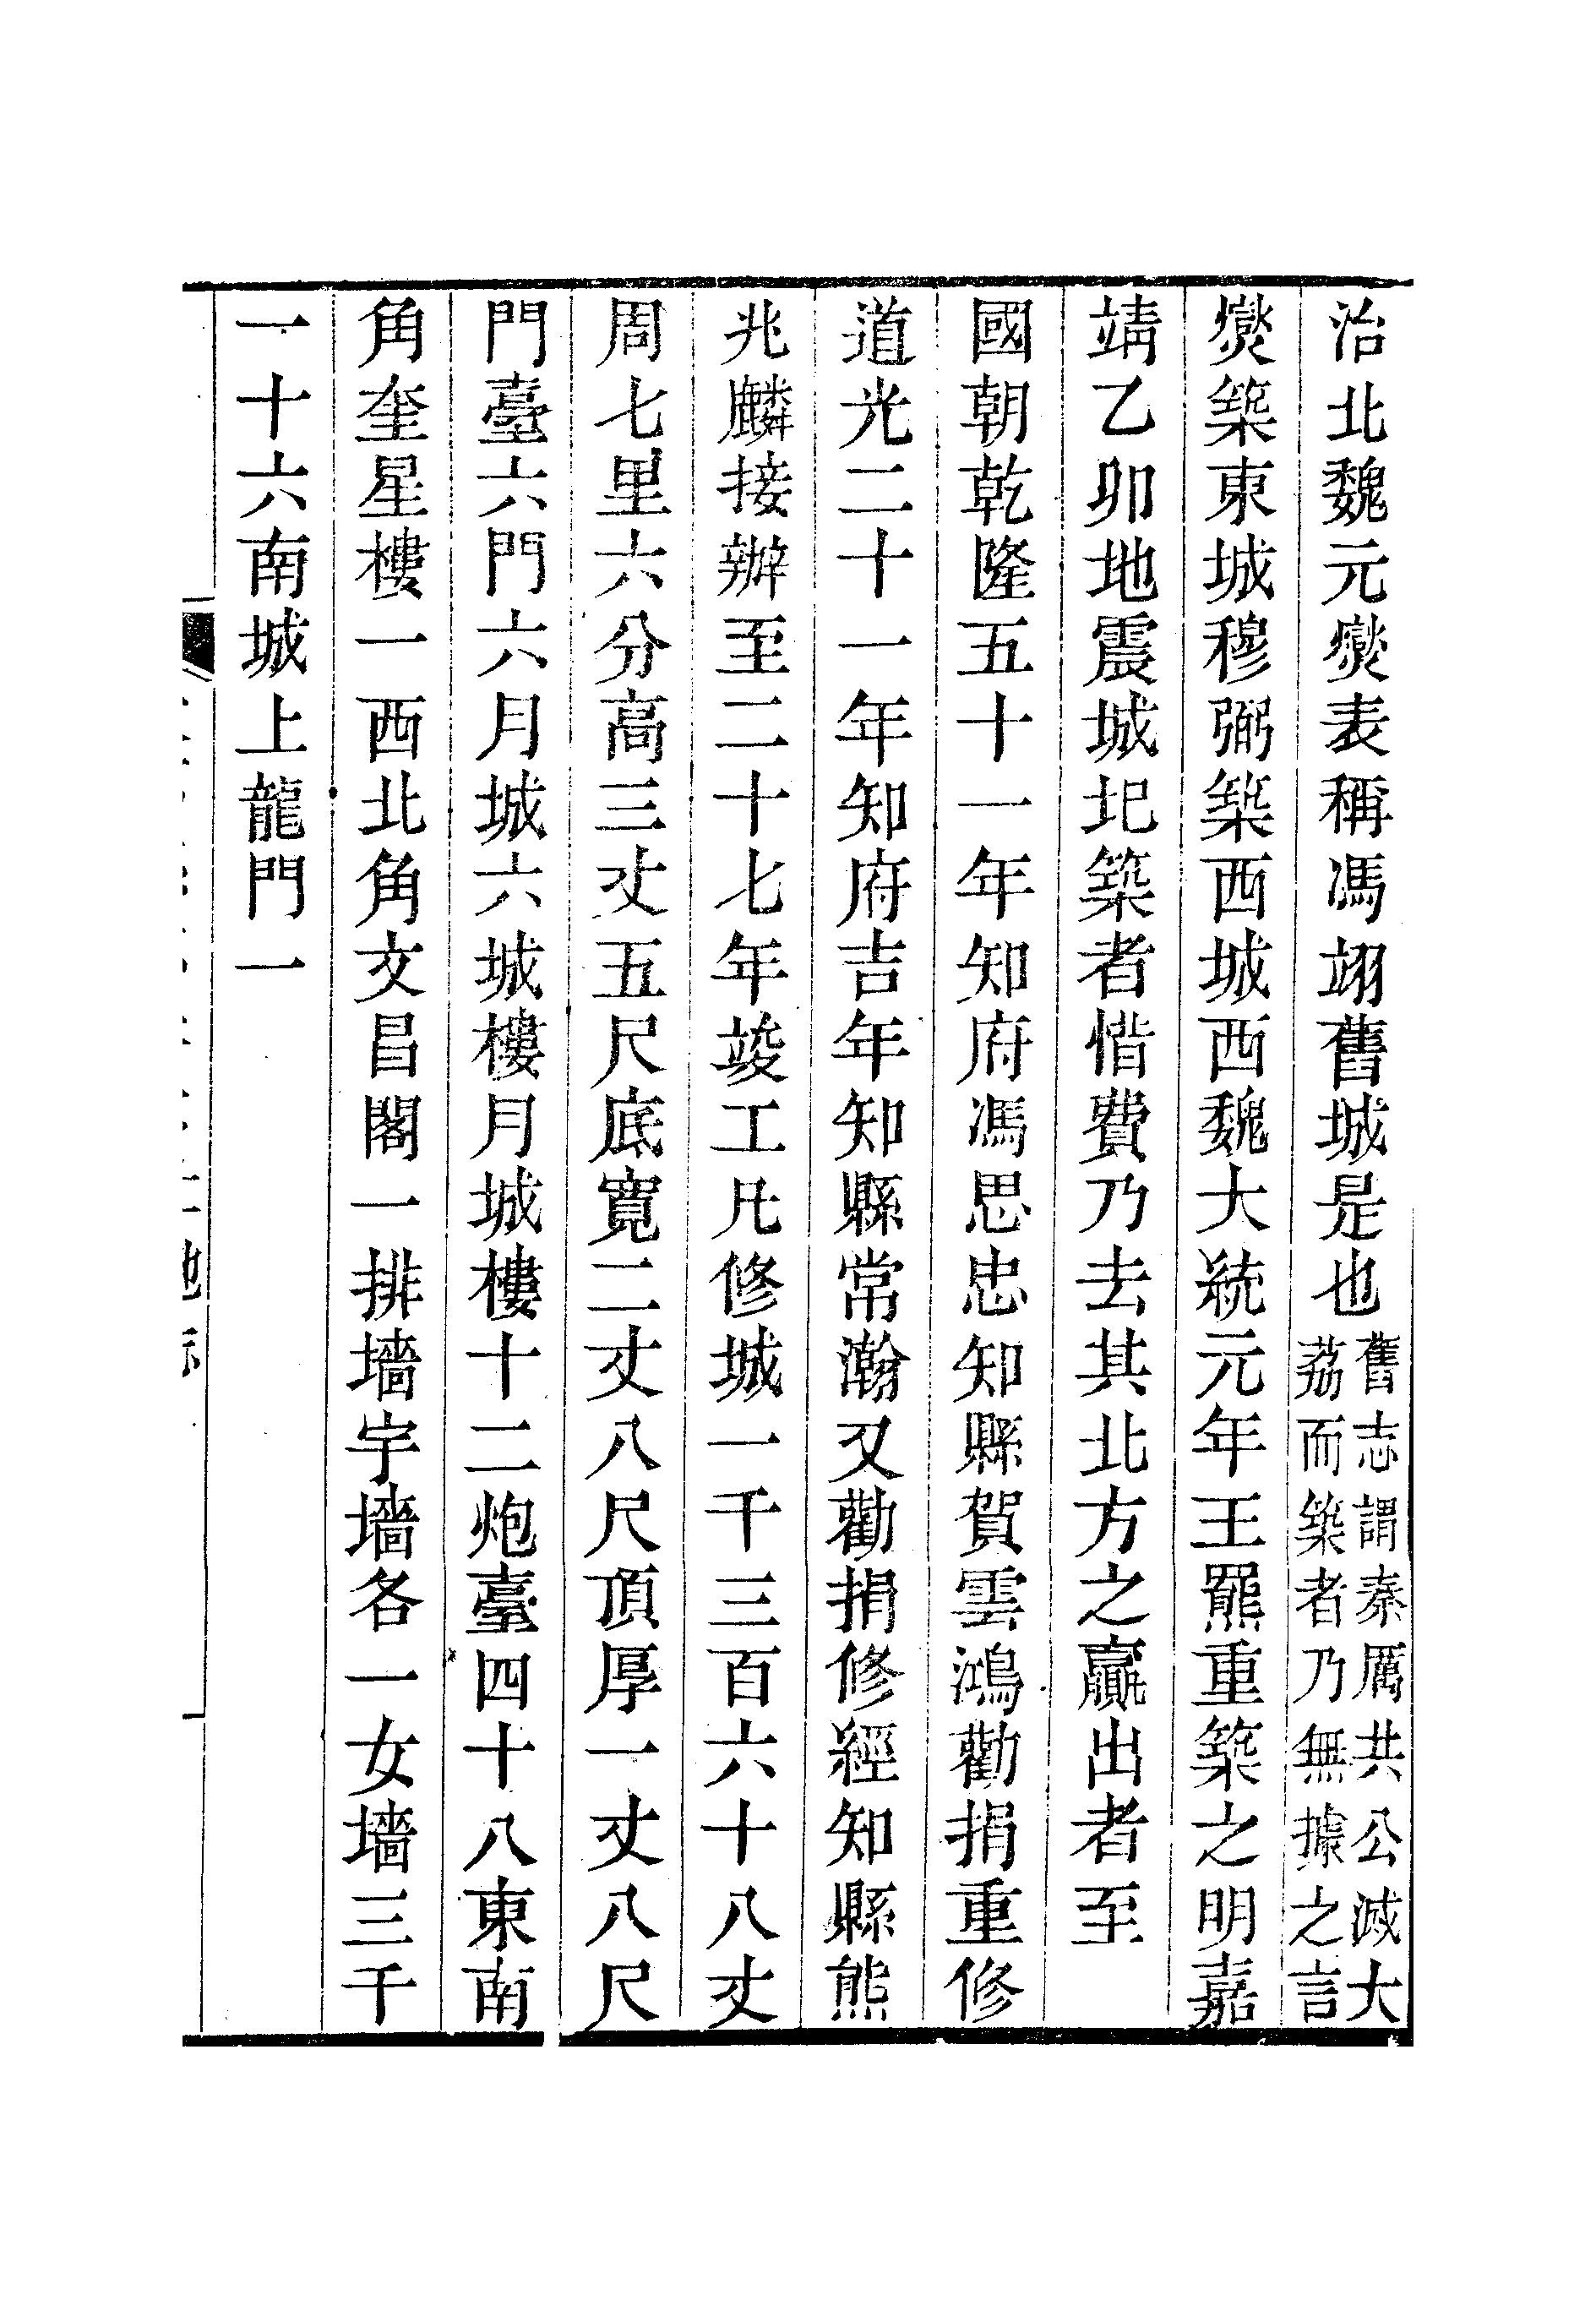 治北魏元爕表稱馮翊舊城是也舊志謂秦厲共公滅大荔而築者乃無據之言
爕築東城穆弼築西城西魏大統元年王羆重築之明嘉
靖乙卯地震城圮築者惜費乃去其北方之羸出者至
國朝乾隆五十一年知府馮思忠知縣賀雲鴻勸捐重修
道光二十一年知府吉年知縣常瀚又勸捐修經知縣熊
兆麟接辦至二十七年竣工凡修城一千三百六十八丈
周七里六分高三丈五尺底寬二丈八尺頂厚一丈八尺
門臺六門六月城六城樓月城樓十二炮臺四十八東南
角奎星樓一西北角文昌閣一排墻宇墻各一女墻三千
一十六南城上龍門一